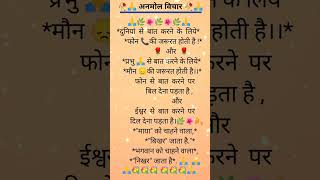 🥀🙏 अनमोल विचार 🙏🥀
🙏🌿🌺🌿🌺🌿🙏
*दुनियां से बात करने के लिये*
*फोन 📞की जरूरत होती है !*
🌹 और 🌹
*प्रभु 🙏 से बात करने के लिये*
*मौन 😔की जरूरत होती है।।*
फोन से बात करने पर
बिल देना पड़ता है ,
और
ईश्वर से बात करने पर
दिल देना पड़ता है।
*"माया" को चाहने वाला,*
*"बिखर" जाता है,*
*भगवान को चाहने वाला*,
*"निखर" जाता है*
ईश्वर
र पर